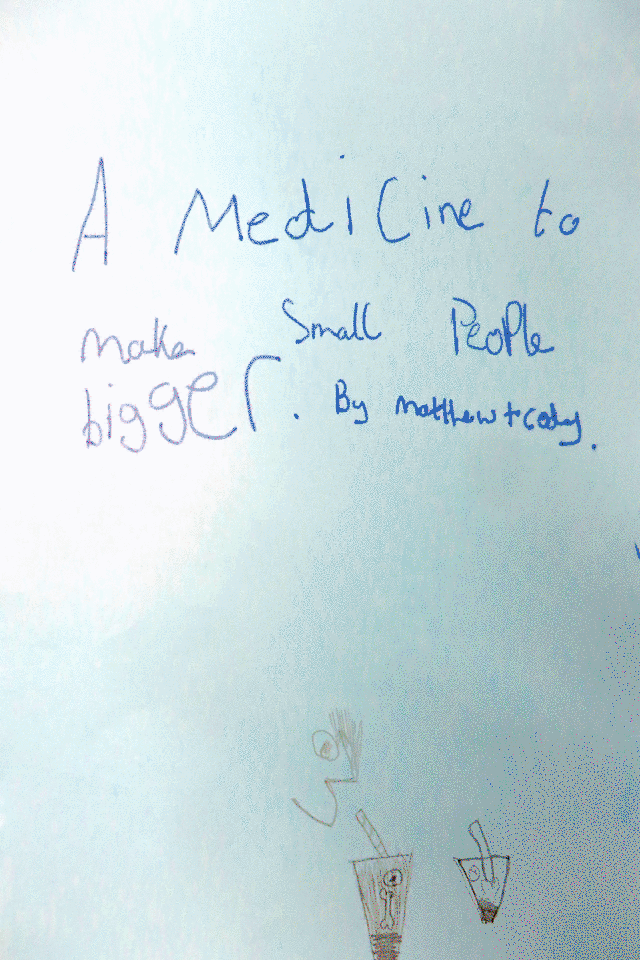 A MediCine to
make Small PeoPle
bigger. By matthew + cody.